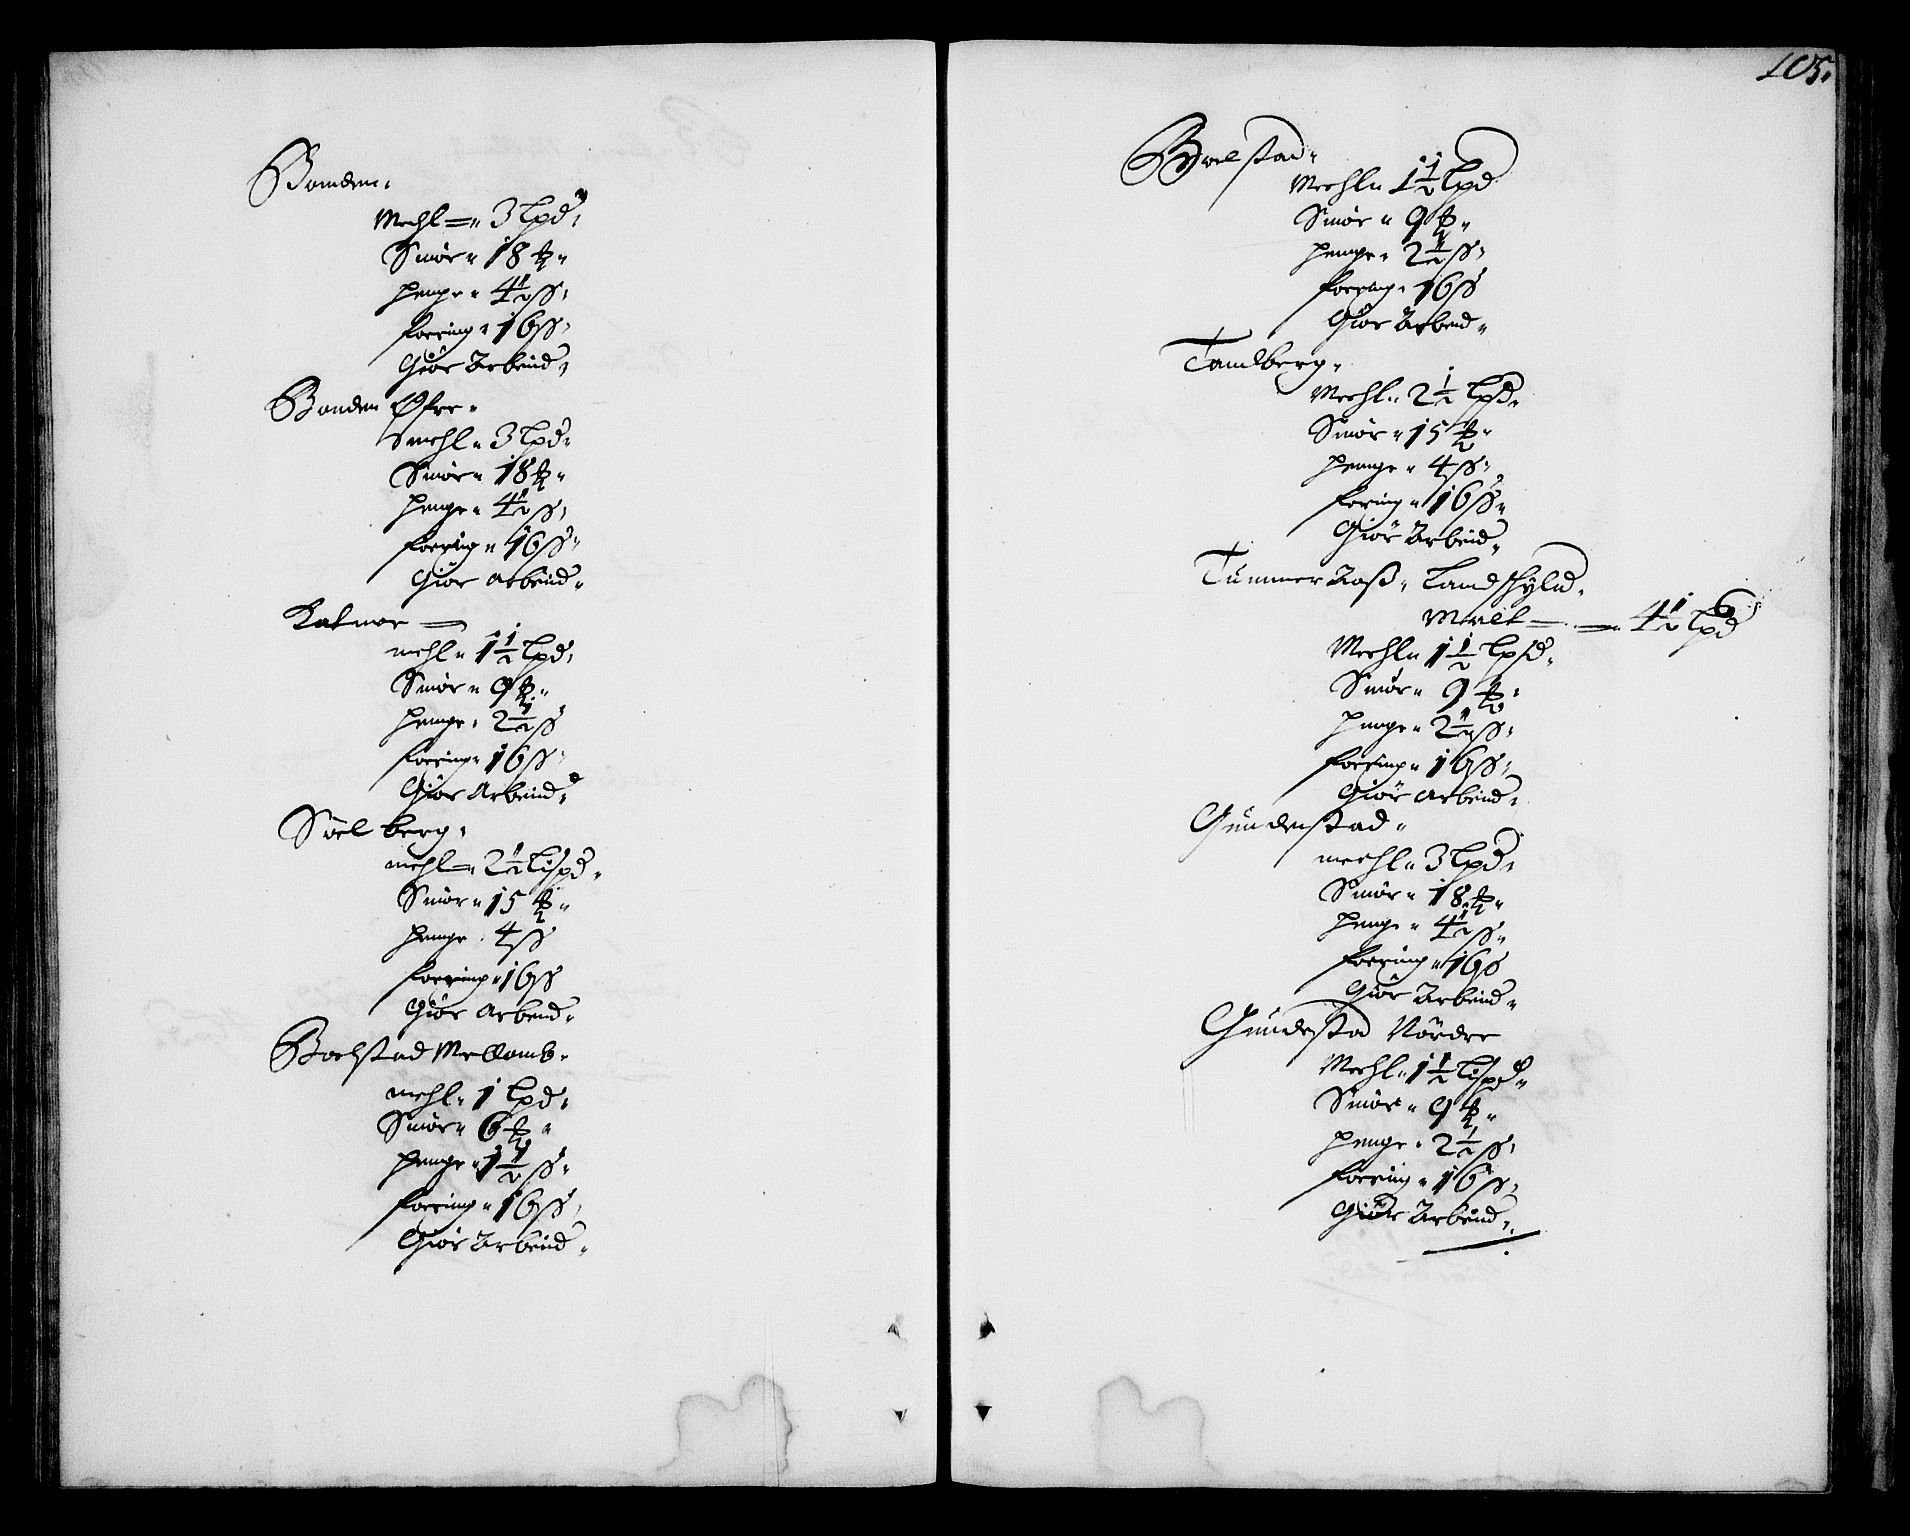 Bonden.
Mehl = 3 Lpd.
Smør 18 ℔
penge 4½ ß.
foering 16 ß.
Giør Arbeid.
Bonden Øfre.
mehl 3 Lpd.
Smør 18 ℔
penge 4½ ß.
foering 16 ß.
Giør Arbeid.
Kalnæs =
mehl 1½ Lpd.
Smør 9 ℔
penge 2½ ß
foering 16 ß.
Giør Arbeid.
Søelberg.
mehl = 2½ Lispd.
Smør 15 ℔
penge 4 ß
foering 16 ß
Giør Arbeid.
Boelstad Mellomb.
mehl 1 Lpd.
Smør 6 ℔
penge 1½ ß.
foering 16 ß.
Giør Arbeid.
105.
Boelstad.
Meehl 1½ Lpd
Smør 9 ℔
penge 2½ ß.
foering 16 ß
Giør Arbeid.
Tandberg.
Meehl 2½ Lpd.
Smør 15 ℔
penge 4 ß.
foering 16 ß.
Giør Arbeid.
Tümmer Aaß. Landschyld.
Malt = 4½ Lpd
Meehl 1½ Lpd.
Smør 9 ℔
penge 2½ ß.
foering 16 ß.
Giør Arbeid.
Gündestad.
meehl 3 Lpd.
Smør 18 ℔
penge 4½ ß.
foering 16 ß
Giør Arbeid.
Gündestad Nördre
Meehl 1½ Lispd.
Smør 9 ℔
penge 2½ ß.
foering 16 ß.
Giør Arbeid.